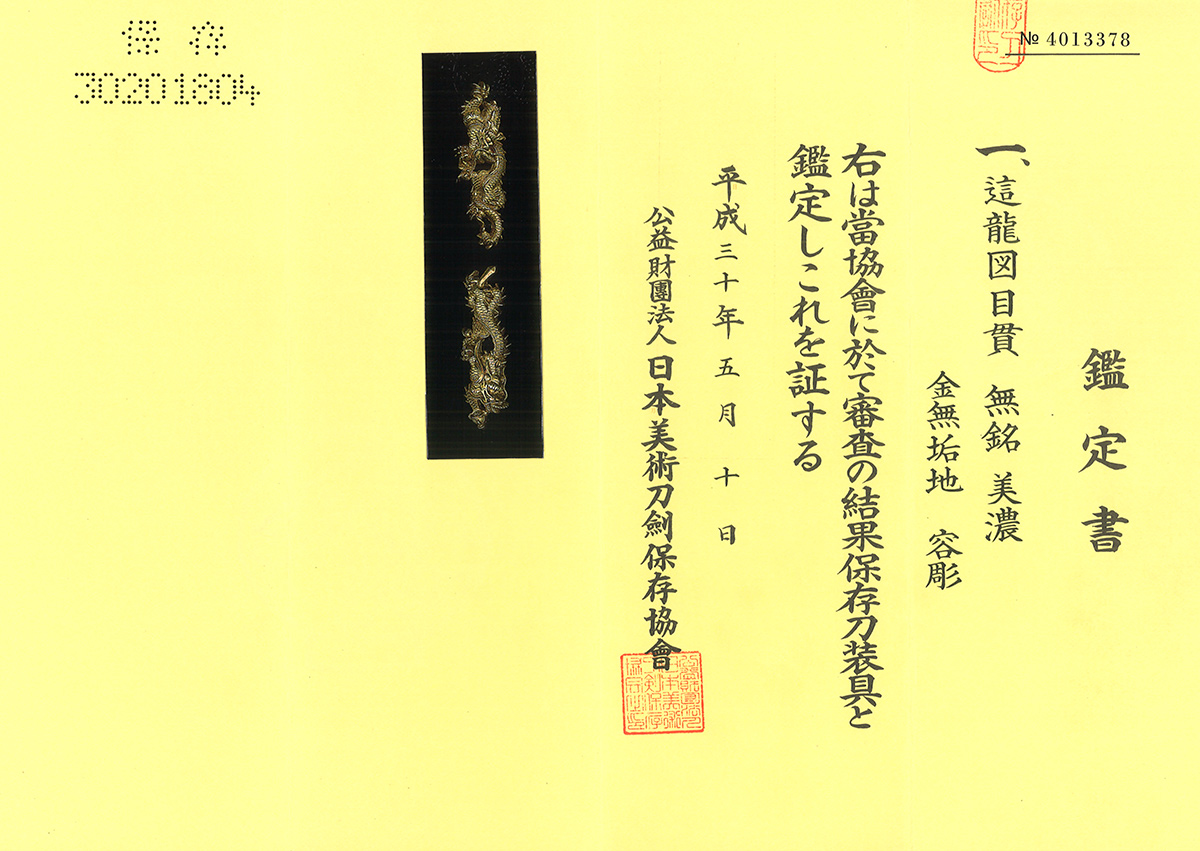 № 4013378
鑑定書
一、這龍図目貫 無銘 美濃
金無垢地 容彫
右は當協會に於て審査の結果保存刀装具と
鑑定しこれを証する
平成三十年五月十日
公益財團法人 日本美術刀劍保存協會
保存
30201804